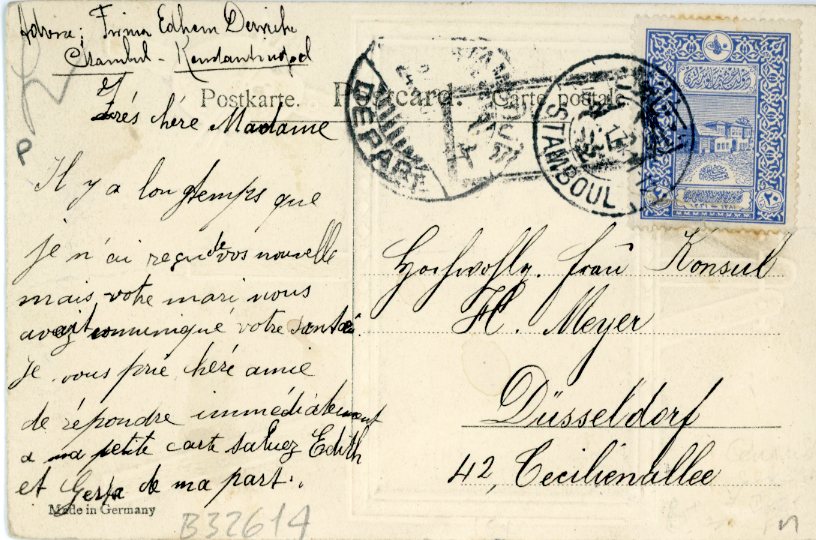 Adresse; Firma Edhem Dervich
Stambul - Konstantinopel
Postkarte. Postcard. Carte postale
Trés chére Madame
Il y a longtemps que
je n'ai reçu de vos nouvelle
mais votre mari nous
avait comuniqué votre santé.
Je vous prie chéré amie
de répondre immédiatement
a ma petite carte saluez Edith
et Gerta de ma part.
Made in Germany
B32614
DEPART
STAMBOUL
Hochwohlg. Frau Konsul
H. Meyer
Düsseldorf
42, Cecilienallee
٢٠